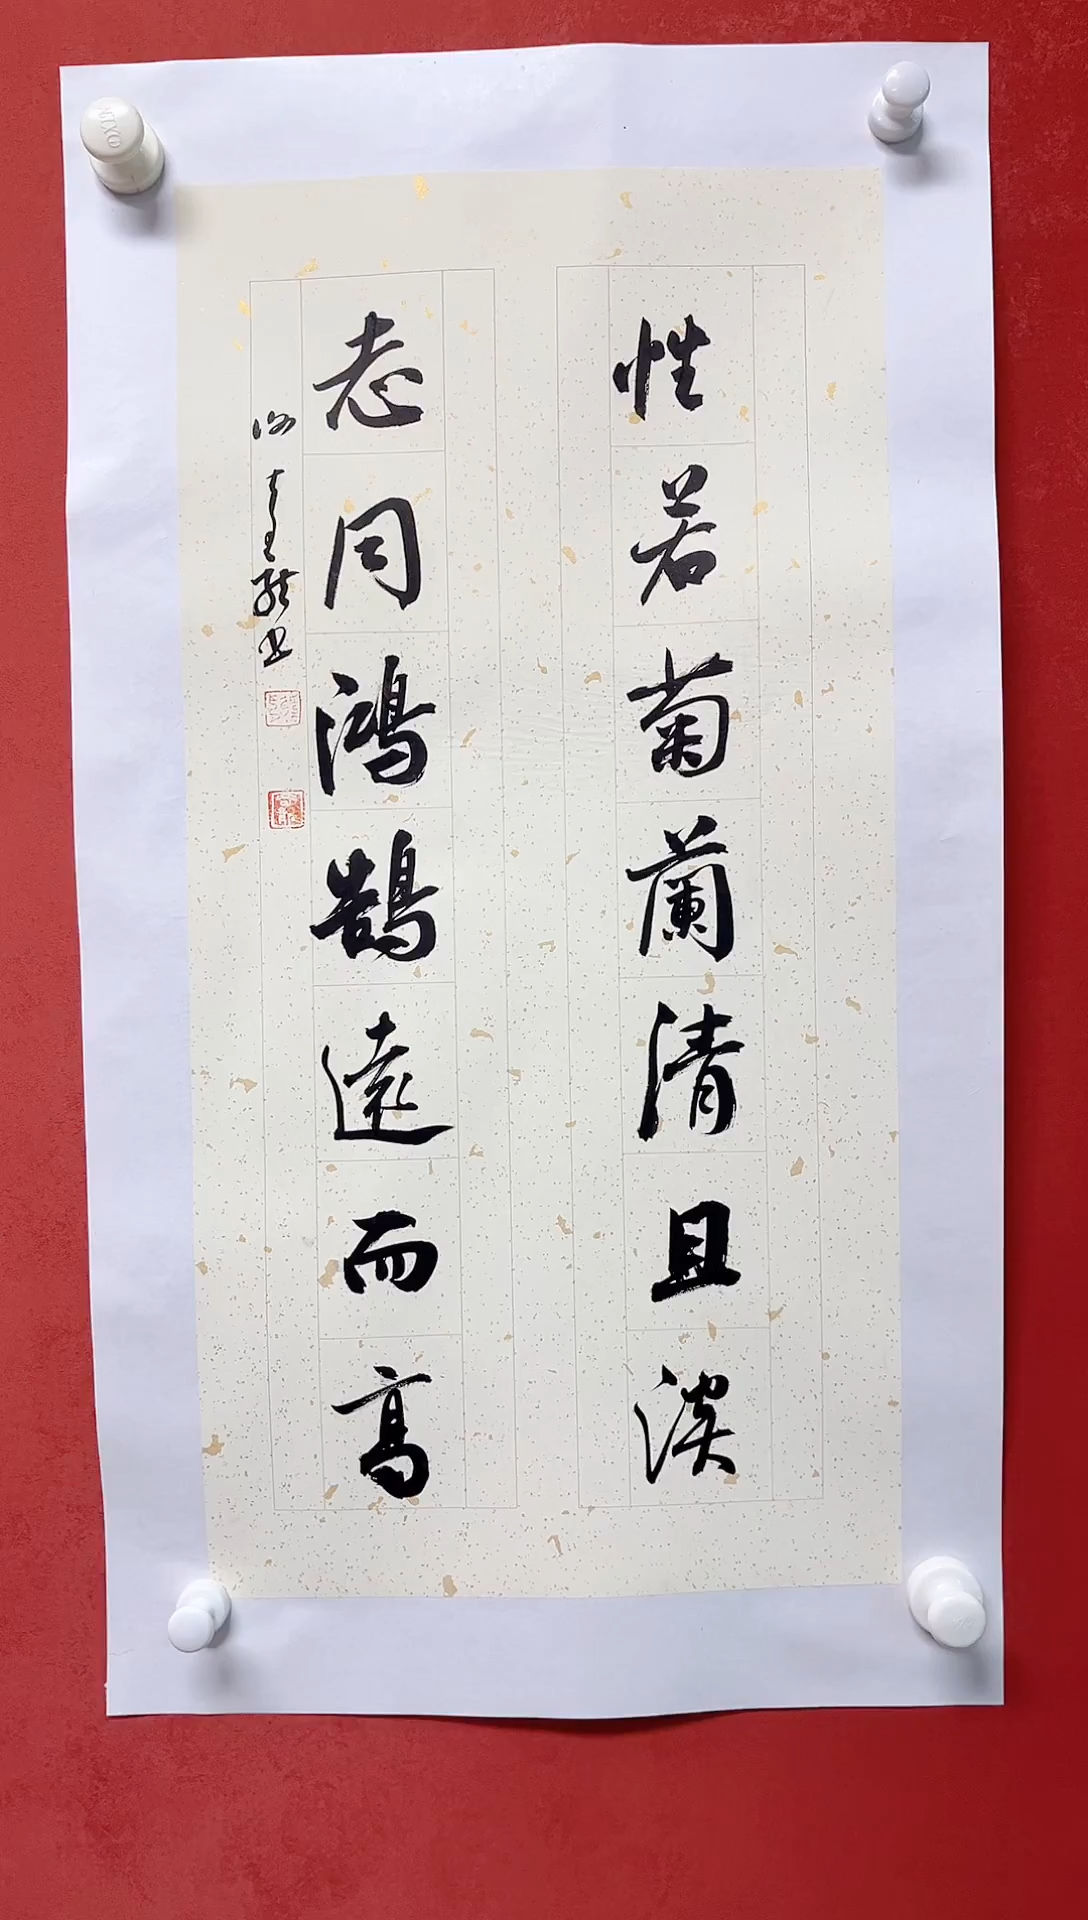 性若菊蘭清且淡
志同鴻鵠遠而高